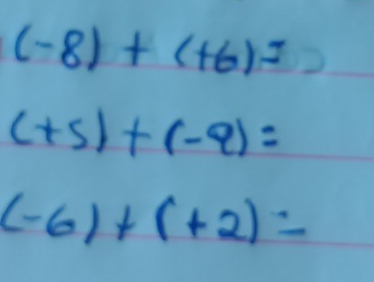 (-8) + (+6) =
(+5) + (-9) =
(-6) + (+2) =